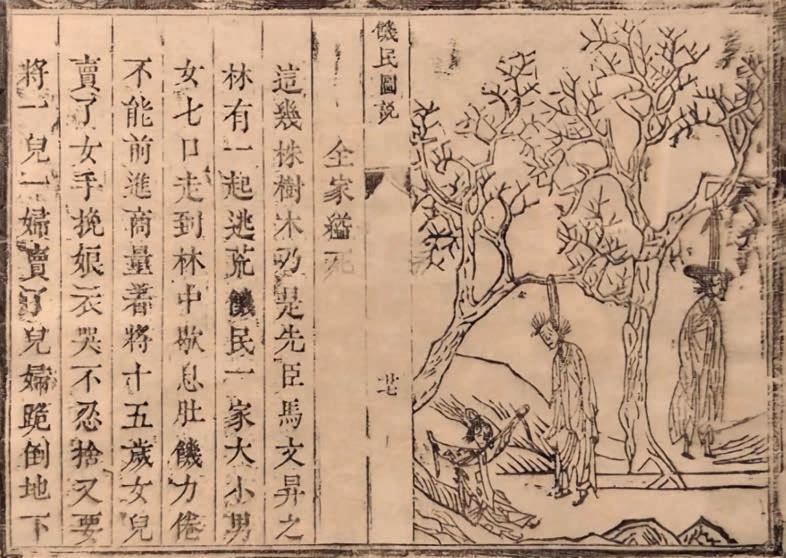 饑民圖說
廿七
全家縊死
這幾株樹木乃是先臣馬文昇之
林有一起逃荒饑民一家大小男
女七口走到林中歇息肚饑力倦
不能前進商量著將十五歲女兒
賣了女手挽娘衣哭不忍捨又要
將一兒一婦賣了兒婦跪倒地下